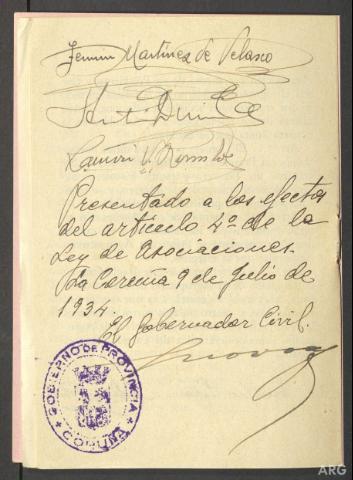 Fermin Martinez de Velasco
Ramón
Presentado a los efectos
del artículo 4º de la
Ley de Asociaciones.
La Coruña 9 de Julio de
1934.
El Gobernador Civil.
GOBIERNO DE PROVINCIA
CORUÑA
ARG